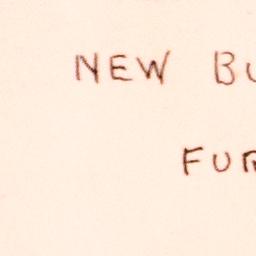 NEW BU
FUR